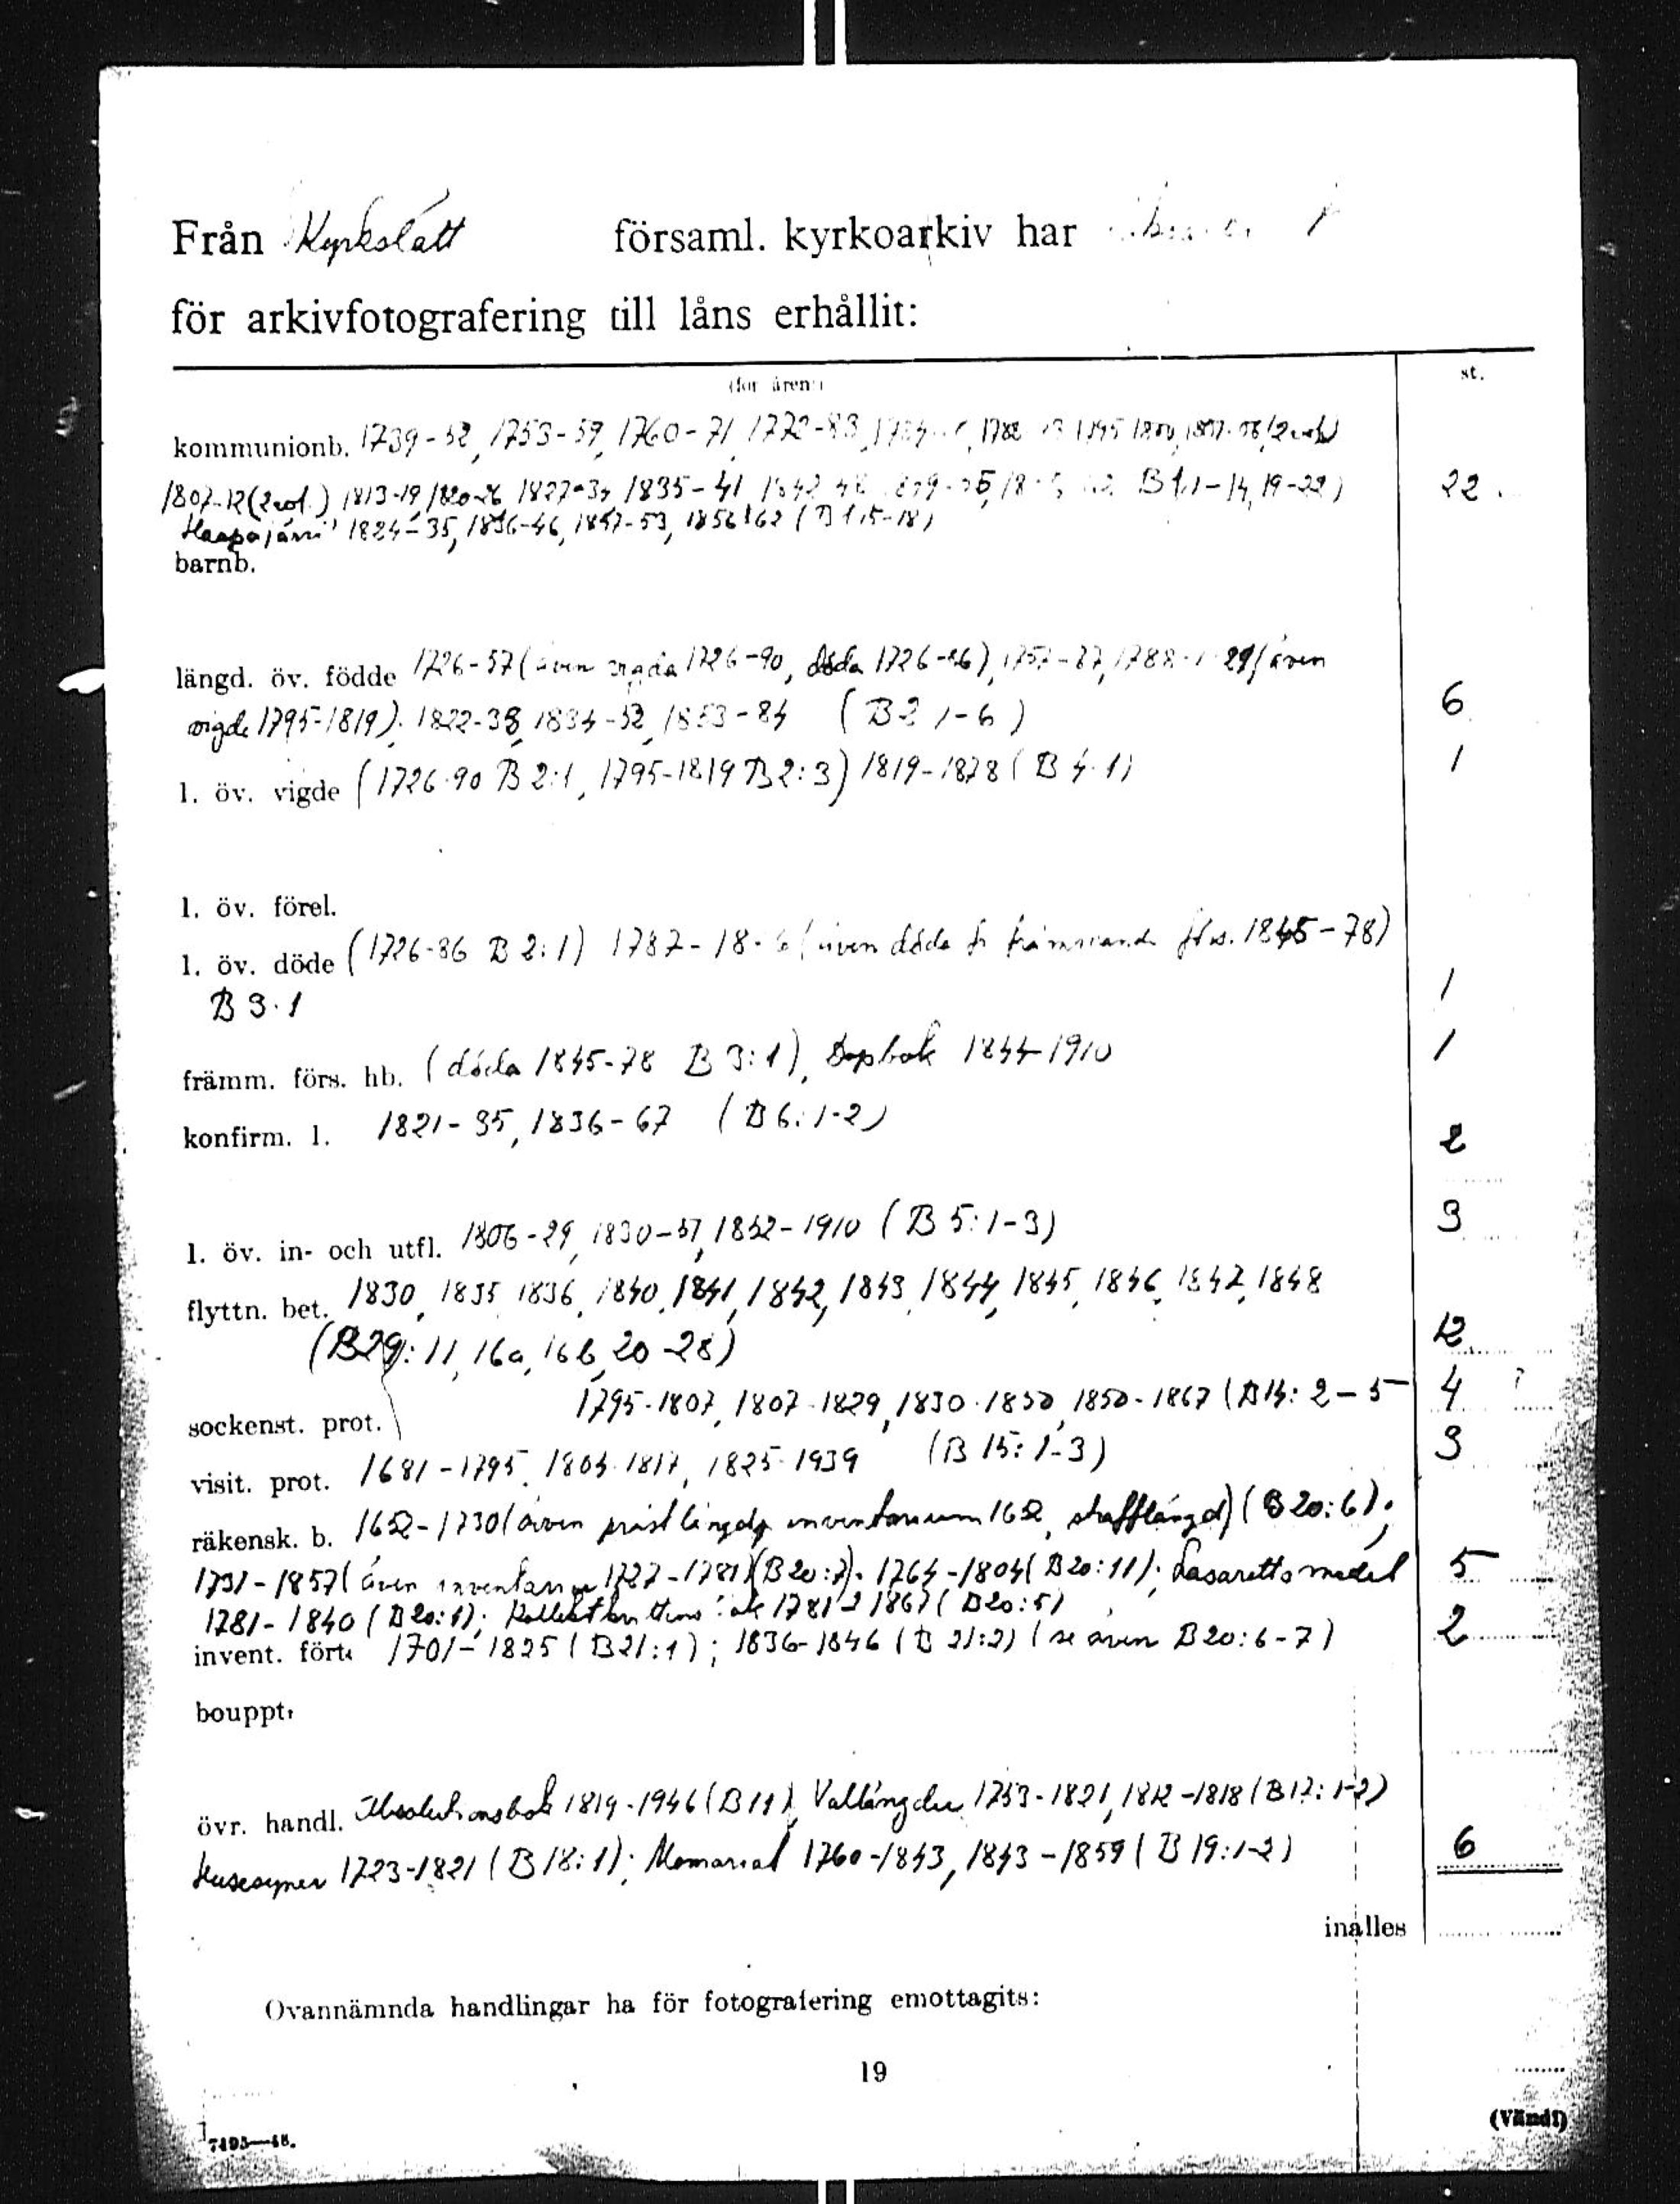 Från Kyrkslätt församl. kyrkoarkiv har
för arkivfotografering till låns erhållit:
(för åren:) st.
kommunionb. 1739-52, 1753-59, 1760-71, 1772-83, 1795 1800,
1807-12 (2 vol.) 1813-19, 1820-26 1827-34 1835-41 1842-48 B 1:1-14, 19-22) 22
Haapajärvi 1824-35, 1836-46, 1847-53, 1856-62 (B 1:15-18)
barnb.
längd. öv. födde 1726-57 (även vigda 1726-90, döda 1726-86), 1757-87, 1788- (även
vigde 1795-1819). 1822-33, 1834-52, 1853-84 (B 2 1-6) 6
l. öv. vigde (1726-90 B 2:1, 1795-1819 B 2:3) 1819-1878 (B 4:1) 1
l. öv. förel.
l. öv. döde (1726-86 B 2:1) 1787- (även döda främmande 1845-78)
B 3:1 1
främm. förs. hb. (döda 1845-78 B 3:1), Dopbok 1844-1910 1
konfirm. l. 1821-35, 1836-67 (B 6:1-2) 2
l. öv. in- och utfl. 1806-29, 1830-51, 1852-1910 (B 5:1-3) 3
flyttn. bet. 1830, 1835, 1836, 1840, 1841, 1842, 1843, 1844, 1845, 1846, 1847, 1848
(B29: 11, 16a, 16b, 20-28) 12
sockenst. prot. 1795-1807, 1807-1829, 1830-1850, 1850-1867 (B14: 2-5 4 ?
visit. prot. 1681-1795, 1804-1817, 1825-1939 (B 15: 1-3) 3
räkensk. b. 1652-1730 (även inventarium 1652, stafflängd) (B 20:6);
1731-1857 (även inventarium 1727-1781) (B20:7). 1764-1804 (B20:11); Lasarettsmedel 5
1781-1840 (B20:1); 1781-1867 (B20:5)
invent. fört. 1701-1825 (B21:1); 1836-1846 (B 21:2) (se även B20:6-7) 2
bouppt.
övr. handl. Absolutionsbok 1819-1946 (B11), Vallängder 1753-1821, 1812-1818 (B17: 1-2)
Husesyner 1723-1821 (B 18:1); Memorial 1760-1843, 1843-1859 (B 19:1-2) 6
inalles
Ovannämnda handlingar ha för fotografering emottagits:
19
7195—48.
(Vänd!)